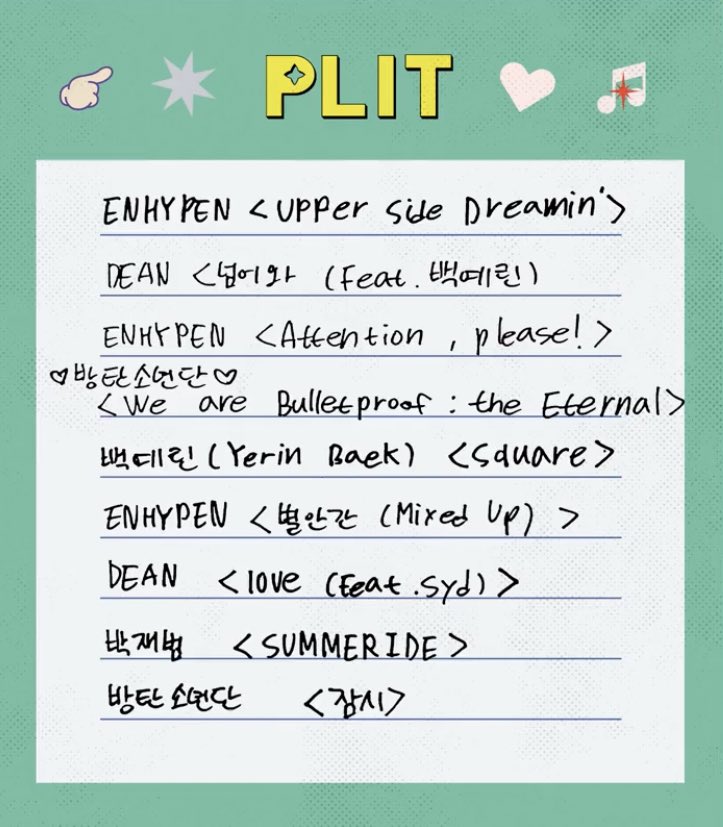 PLIT
ENHYPEN <Upper Side Dreamin'>
DEAN <넘어와 (Feat. 백예린)
ENHYPEN <Attention, please!>
♡방탄소년단♡
<We are Bulletproof : the Eternal>
백예린(Yerin Baek) <Square>
ENHYPEN <별안간 (Mixed Up) >
DEAN <love (Feat.syd)>
박재범 <SUMMERIDE>
방탄소년단 <잠시>